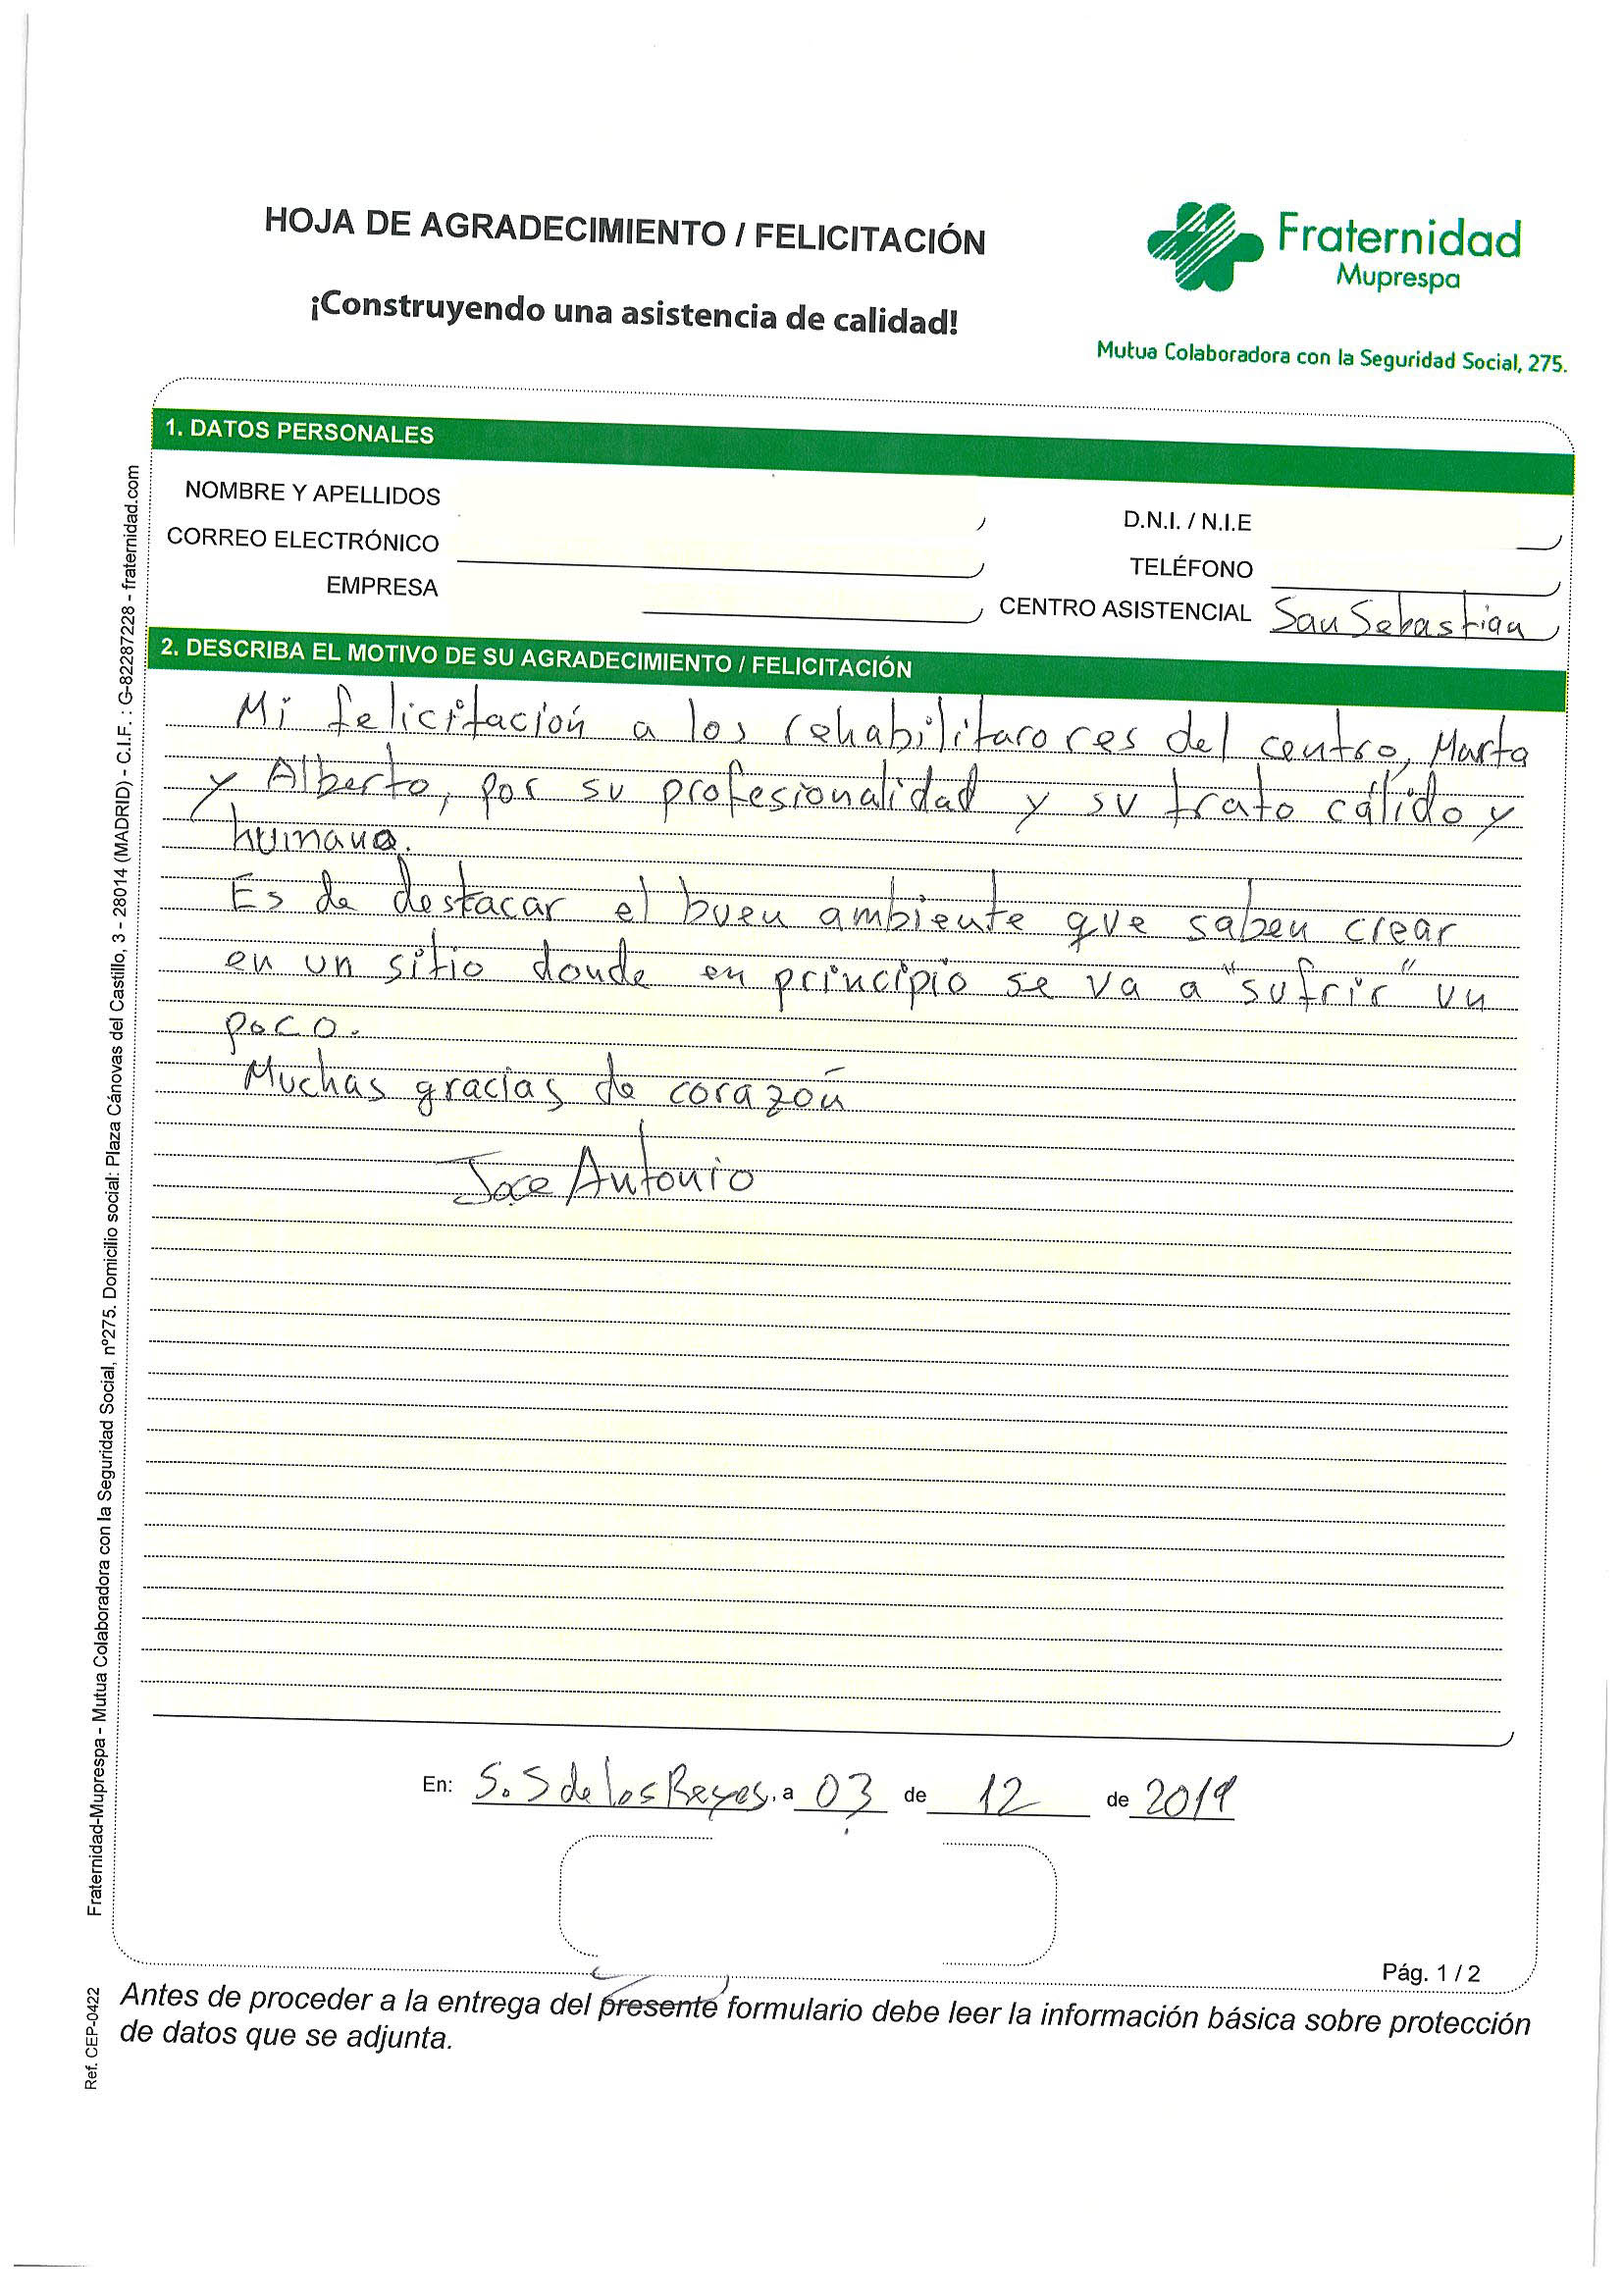 HOJA DE AGRADECIMIENTO / FELICITACIÓN
¡Construyendo una asistencia de calidad!
Fraternidad
Muprespa
Mutua Colaboradora con la Seguridad Social, 275.
1. DATOS PERSONALES
NOMBRE Y APELLIDOS
D.N.I. / N.I.E
CORREO ELECTRÓNICO
TELÉFONO
EMPRESA
CENTRO ASISTENCIAL San Sebastian
2. DESCRIBA EL MOTIVO DE SU AGRADECIMIENTO / FELICITACIÓN
Mi felicitación a los rehabilitarores del centro, Marta
y Alberto, por su profesionalidad y su trato cálido y
humano.
Es de destacar el buen ambiente que saben crear
en un sitio donde en principio se va a "sufrir" un
poco.
Muchas gracias de corazón
Jose Antonio
En: S. S de los Reyes, a 03 de 12 de 2019
Pág. 1 / 2
Antes de proceder a la entrega del presente formulario debe leer la información básica sobre protección
de datos que se adjunta.
Fraternidad-Muprespa - Mutua Colaboradora con la Seguridad Social, nº275. Domicilio social: Plaza Cánovas del Castillo, 3 - 28014 (MADRID) - C.I.F. : G-82287228 - fraternidad.com
Ref. CEP-0422